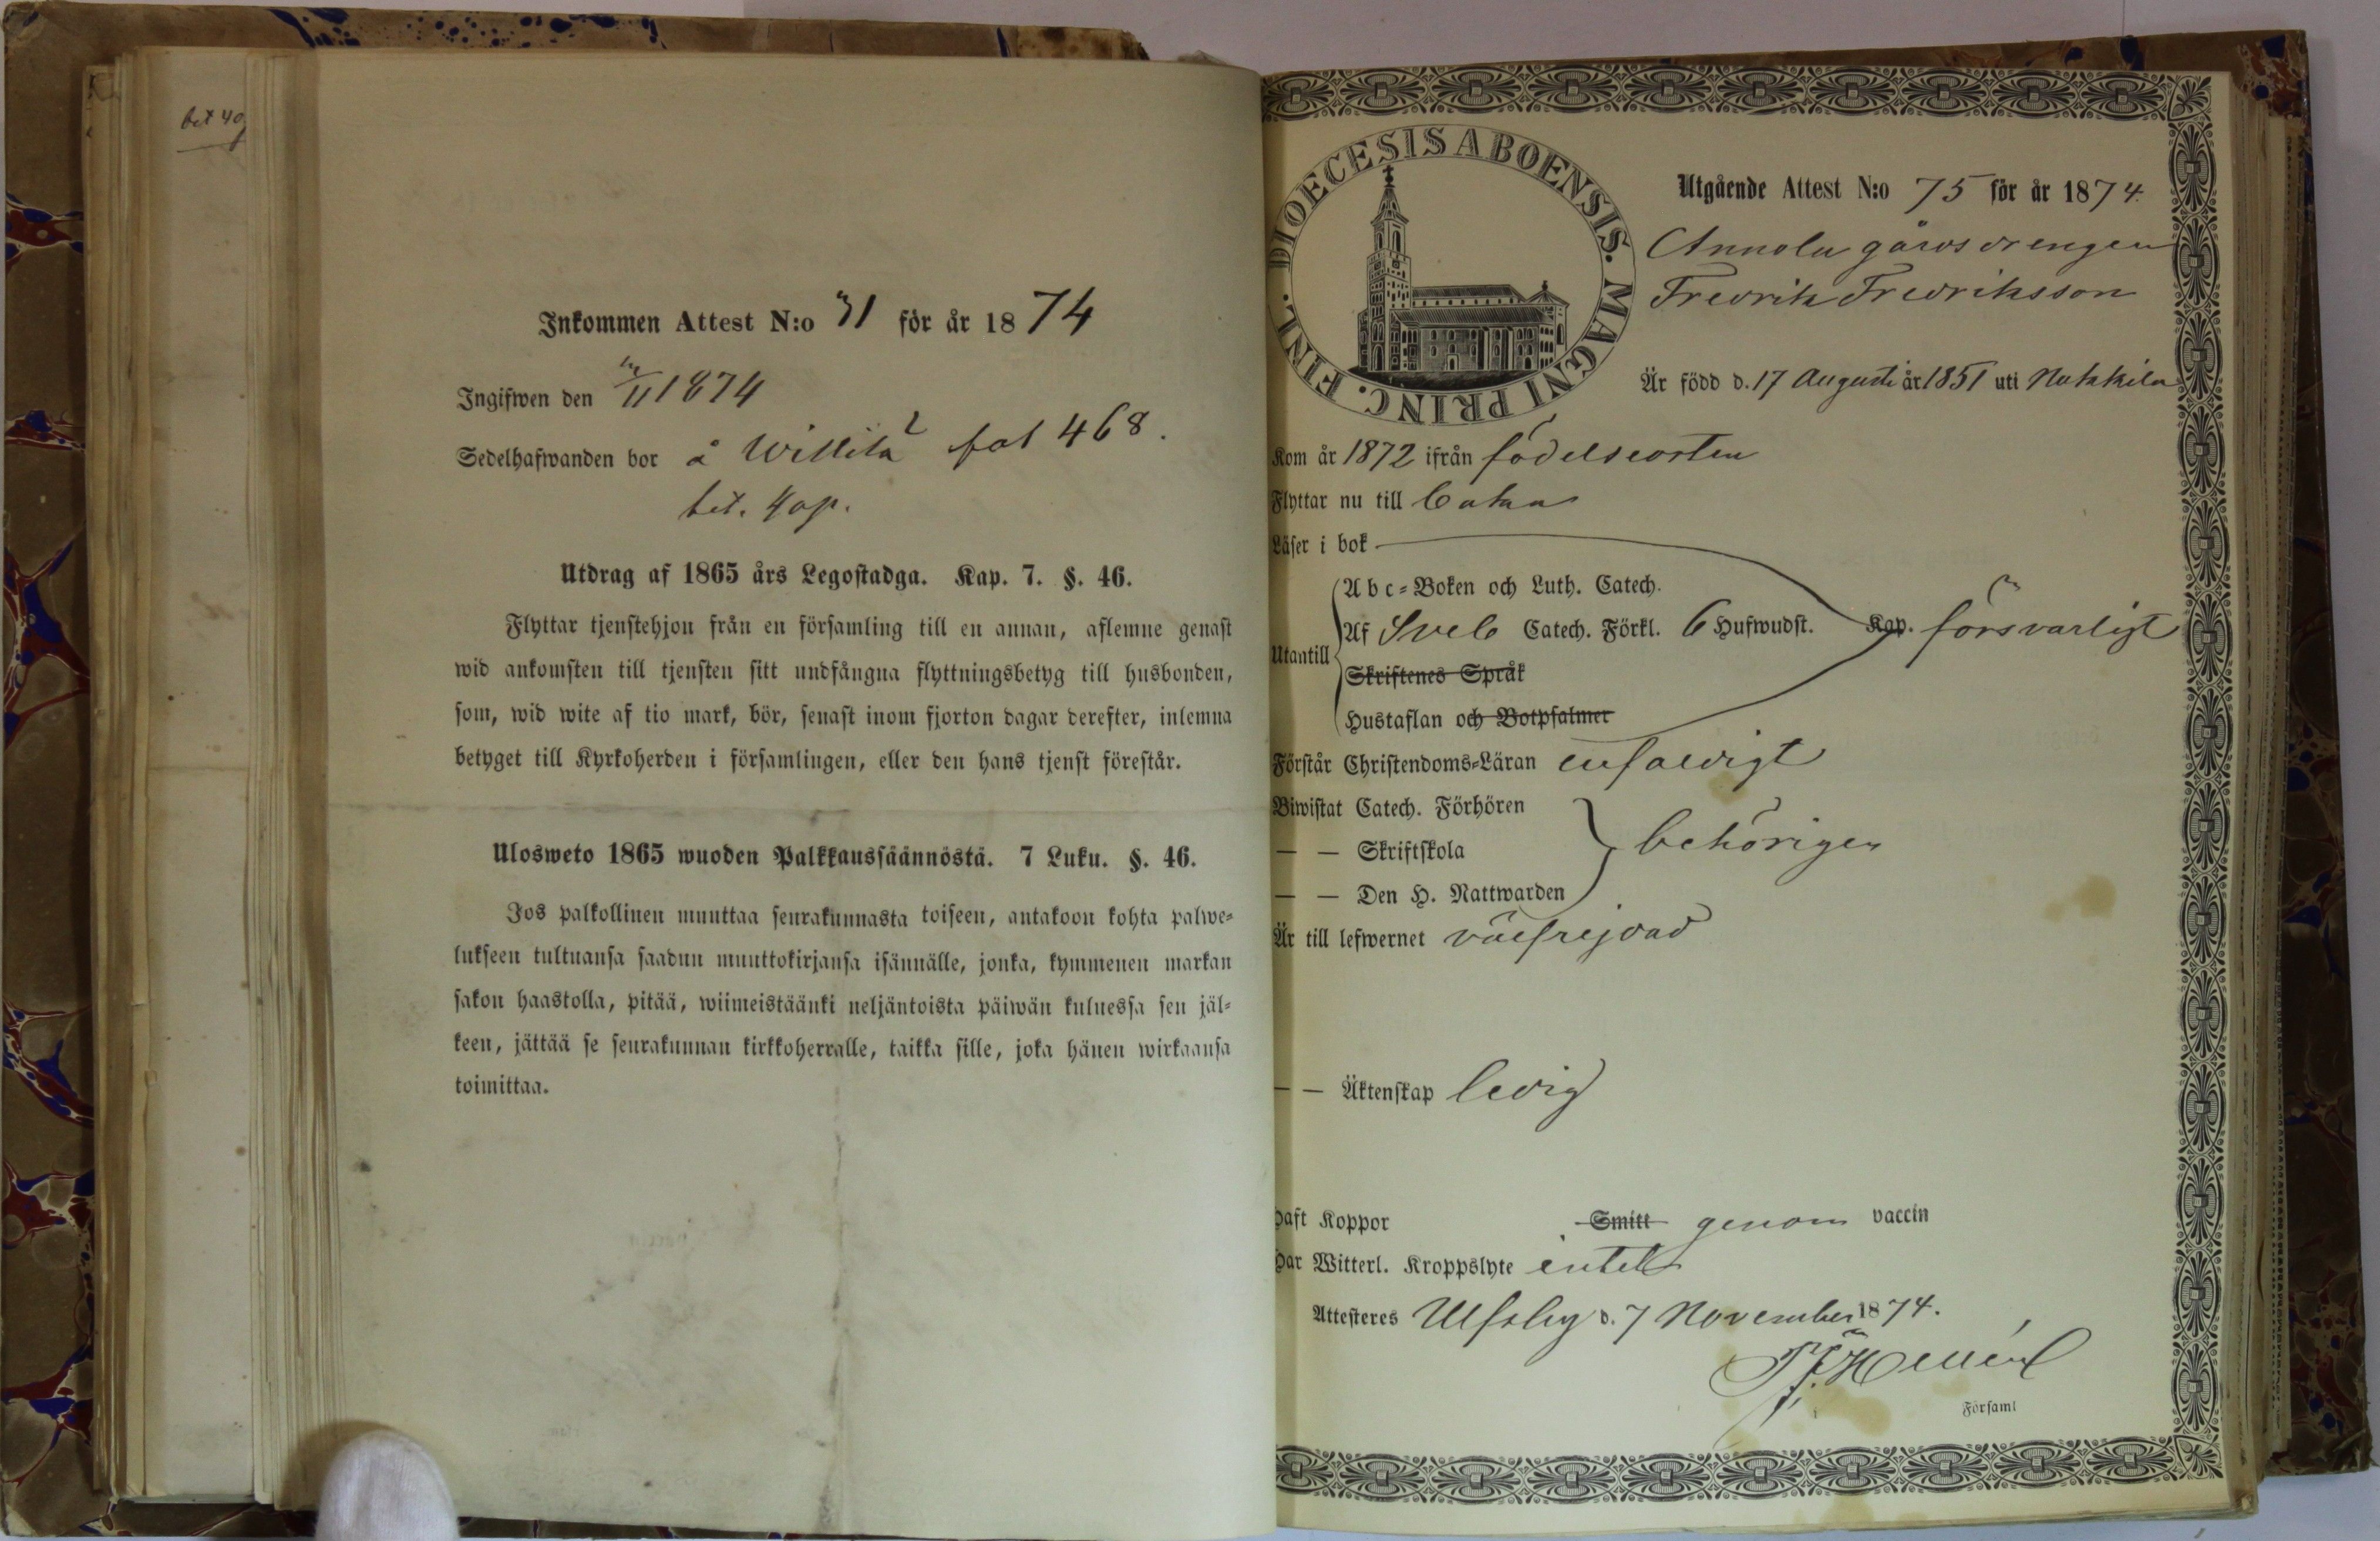 bet 40
Inkommen Attest N:o 31 för år 1874
Ingifwen den /11 1874
Sedelhafwanden bor å fol 468.
bet. 40p.
Utdrag af 1865 års Legostadga. Kap. 7. §. 46.
Flyttar tjenstehjon från en församling till en annan, aflemne genast
wid ankomsten till tjensten sitt undfångna flyttningsbetyg till husbonden,
som, wid wite af tio mark, bör, senast inom fjorton dagar derefter, inlemna
betyget till Kyrkoherden i församlingen, eller den hans tjenst förestår.
Ulosweto 1865 wuoden Palkkaussäännöstä. 7 Luku. §. 46.
Jos palkollinen muuttaa seurakunnasta toiseen, antakoon kohta palwe=
lukseen tultuansa saadun muuttokirjansa isännälle, jonka, kymmenen markan
sakon haastolla, pitää, wiimeistäänki neljäntoista päiwän kuluessa sen jäl=
keen, jättää se seurakunnan kirkkoherralle, taikka sille, joka hänen wirkaansa
toimittaa.
DIOECESIS ABOENSIS. MAGNI PRINC. FINL.
Utgående Attest N:o 75 för år 1874.
Annola gårdsdrengen
Fredrik Fredriksson
Är född d. 17 Augusti år 1851 uti Nakkila
Kom år 1872 ifrån födelseorten
Flyttar nu till
Läser i bok
Abc=Boken och Luth. Catech.
Utantill Af Sveb Catech. Förkl. 6 Hufwudst. Kap. försvarligt
Skriftenes Språk
Hustaflan och Botpsalmer
Förstår Christendoms=Läran enfaldigt
Biwistat Catech. Förhören
— — Skriftskola behörigen
— — Den H. Nattwarden
Är till lefwernet välfrejdad
— — Äktenskap ledig
Haft Koppor Smitt genom vaccin
Har Witterl. Kroppslyte intet
Attesteres Ulfsby d. 7 November 1874.
Församl